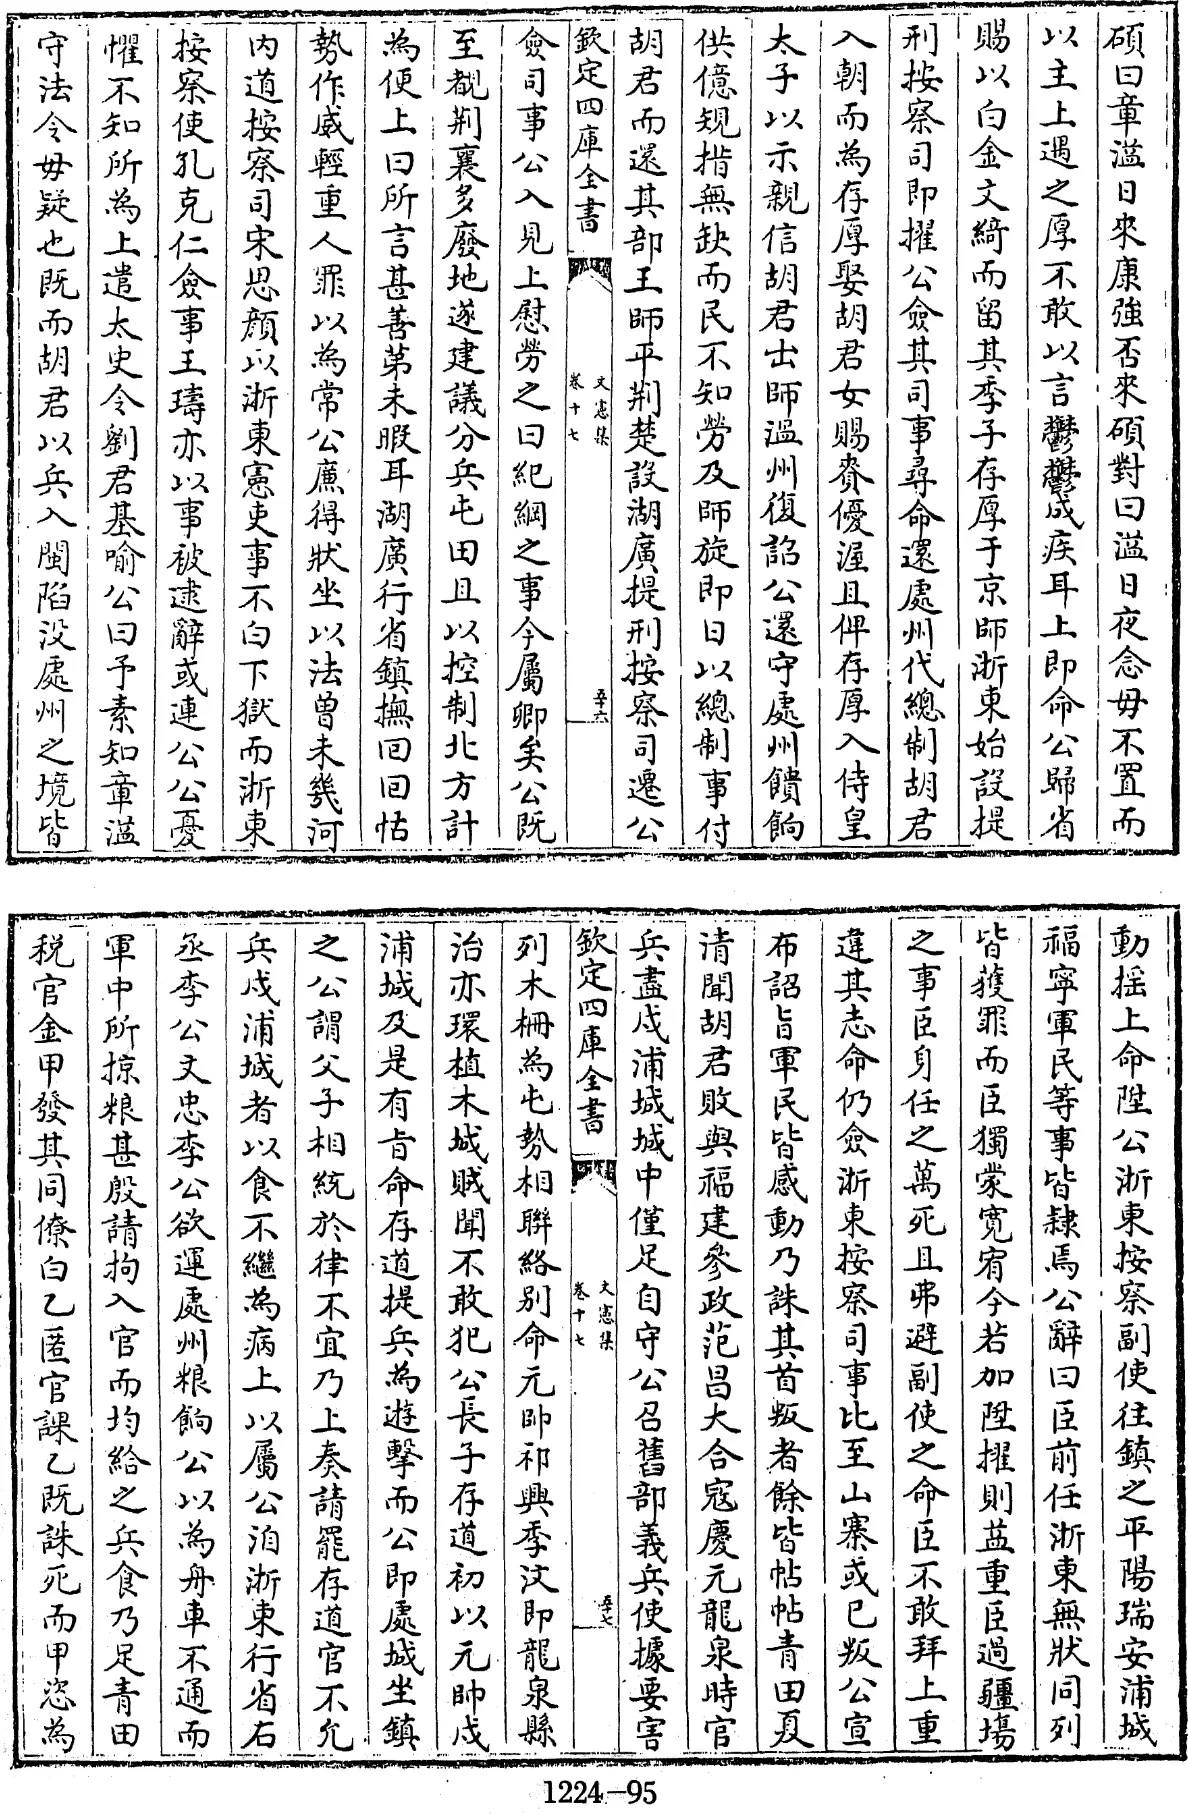 碩曰章溢日來康強否來碩對曰溢日夜念母不置而
以主上遇之厚不敢以言鬱鬱成疾耳上即命公歸省
賜以白金文綺而留其季子存厚于京師浙東始設提
刑按察司即擢公僉其司事尋命還處州代總制胡君
入朝而為存厚娶胡君女賜賚優渥且俾存厚入侍皇
太子以示親信胡君出師温州復詔公還守處州饋餉
供億規措無缺而民不知勞及師旋即日以總制事付
胡君而還其部王師平荆楚設湖廣提刑按察司遷公
欽定四庫全書
文憲集
卷十七
五十六
僉司事公入見上慰勞之曰紀綱之事今屬卿矣公既
至覩荆襄多廢地遂建議分兵屯田且以控制北方計
為便上曰所言甚善第未暇耳湖廣行省鎮撫囘囘怙
勢作威輕重人罪以為常公廉得狀坐以法曽未幾河
内道按察司宋思顔以浙東憲吏事不白下獄而浙東
按察使孔克仁僉事王璹亦以事被逮辭或連公公憂
懼不知所為上遣太史令劉君基喻公曰予素知章溢
守法令毋疑也既而胡君以兵入閩陷没處州之境皆
動揺上命陞公浙東按察副使往鎮之平陽瑞安浦城
福寧軍民等事皆隸焉公辭曰臣前任浙東無狀同列
皆獲罪而臣獨蒙寛宥今若加陞擢則葢重臣過疆場
之事臣身任之萬死且弗避副使之命臣不敢拜上重
違其志命仍僉浙東按察司事比至山寨或已叛公宣
布詔旨軍民皆感動乃誅其首叛者餘皆帖帖青田夏
清聞胡君敗與福建參政范昌大合寇慶元龍泉時官
兵盡戍浦城城中僅足自守公召舊部義兵使據要害
欽定四庫全書
文憲集
卷十七
五十七
列木柵為屯勢相聯絡别命元帥祁興季汶即龍泉縣
治亦環植木城賊聞不敢犯公長子存道初以元帥戍
浦城及是有旨命存道提兵為遊擊而公即處城坐鎮
之公謂父子相統於律不宜乃上奏請罷存道官不允
兵戍浦城者以食不繼為病上以屬公洎浙東行省右
丞李公文忠李公欲運處州粮餉公以為舟車不通而
軍中所掠粮甚殷請拘入官而均給之兵食乃足青田
税官金甲發其同僚白乙匿官課乙既誅死而甲恣為
1224—95